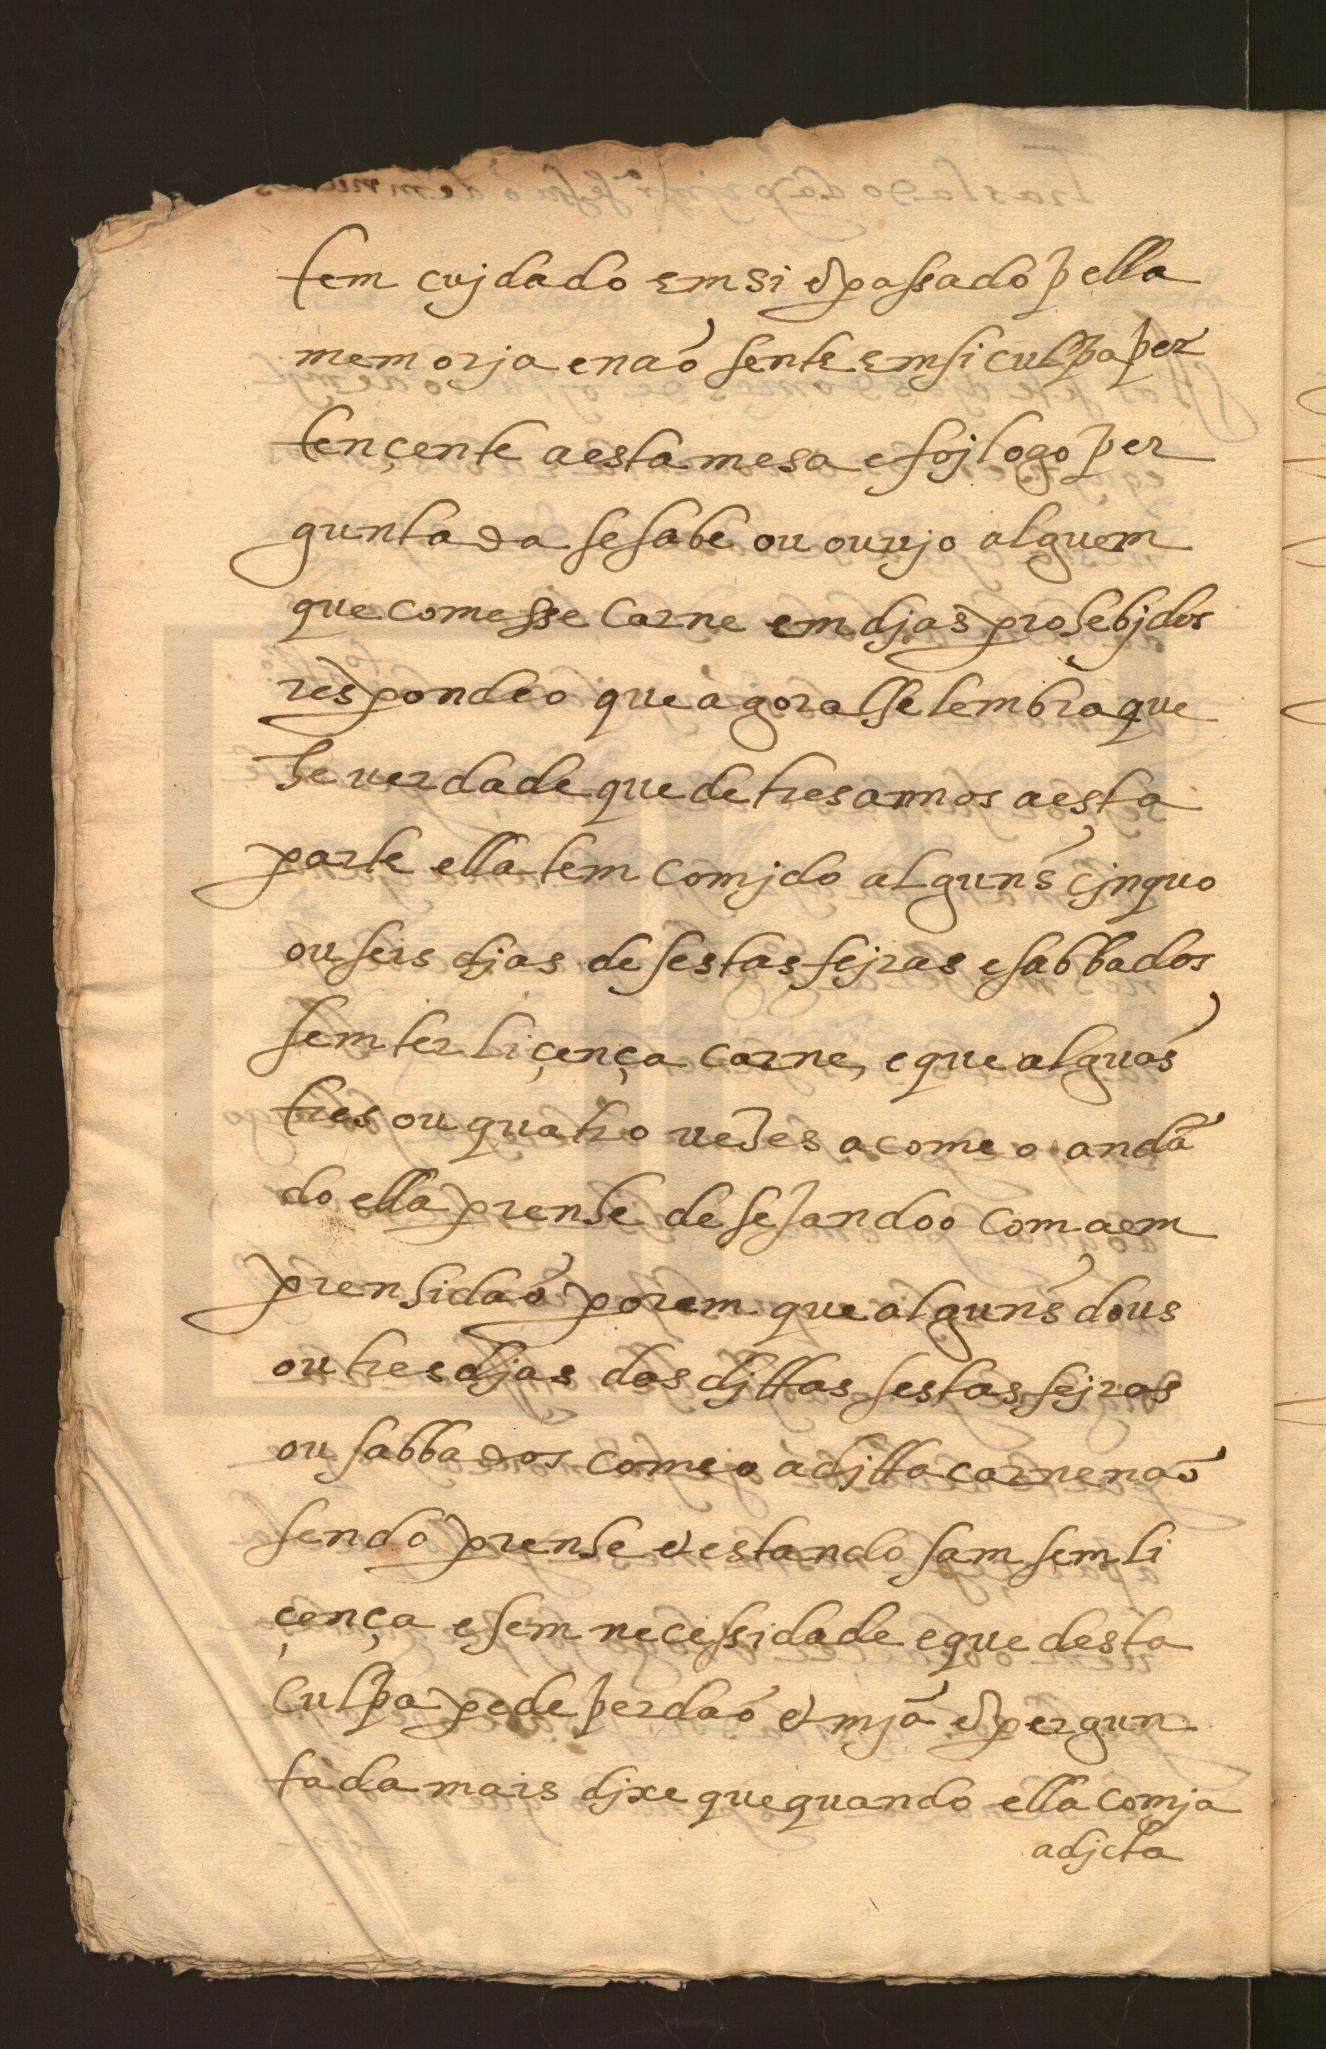 tem cujdado em si & passado p ella
memorja e naõ sente em si culpa per
tençente a esta mesa e foj logo per
guntada se sabe ou ouujo alguem
que comesse carne em djas prohebjdos
respondeo que agora lhe lembra que
he uerdade que de tres annos a esta
parte ella tem comjdo algũns cjnquo
ou seis djas de sestas fejras e sabbados
sem ter liçença carne, e que algũas
tres ou quatro vezes a comeo andã
do ella prenhe desejandoo com a em
prenhidaõ porem que algũns dous
ou tres djas das djttas sestas fejras
ou sabbados comeo a djtta carne naõ
sendo prenhe & estando sam sem li
çença e sem necessidade e que desta
culpa pede perdaõ & mjã & pergun
tada mais djxe que quando ella comja
adjcta